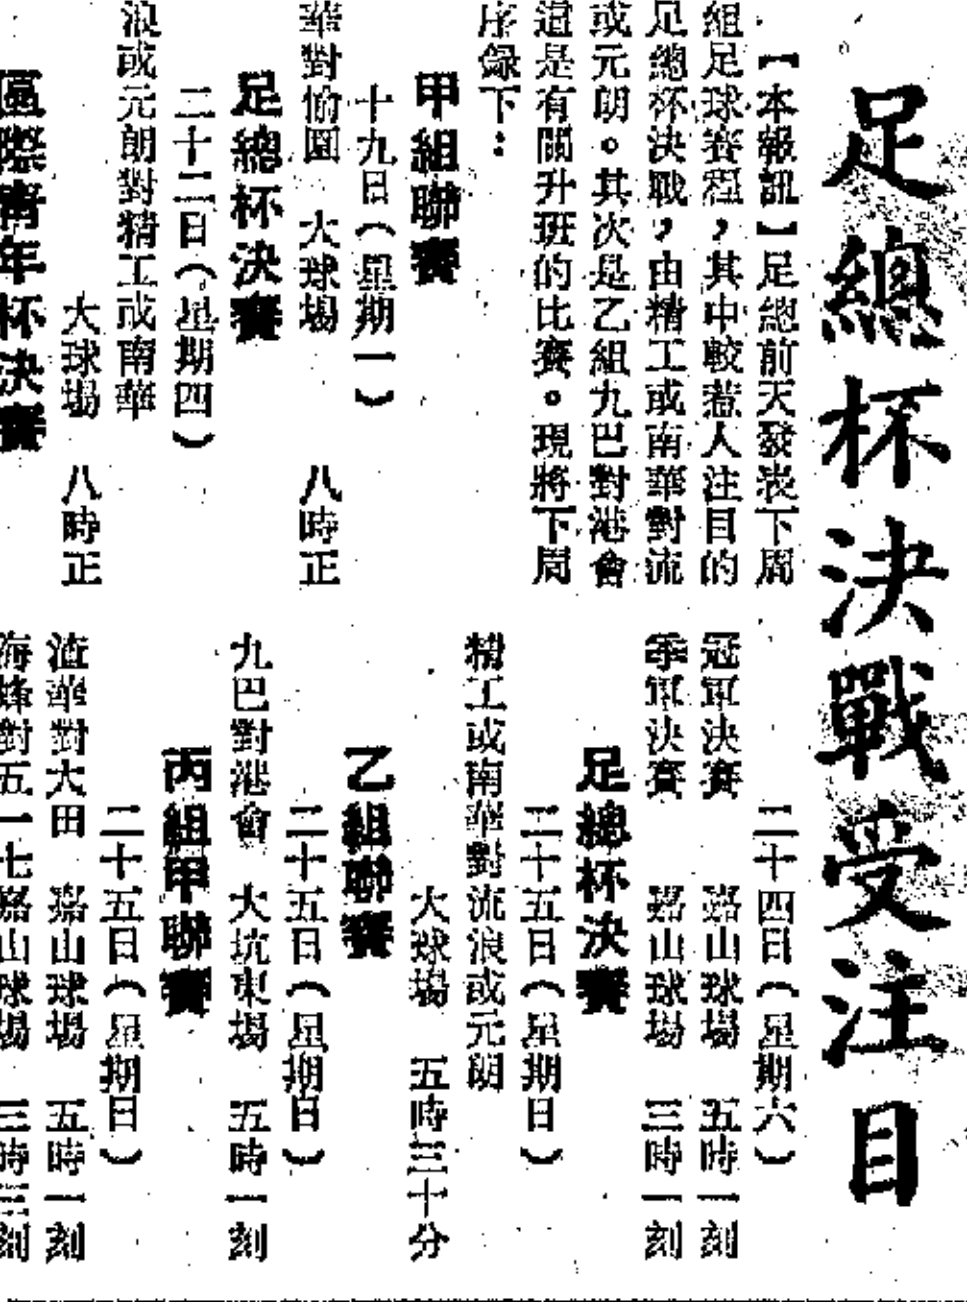 足總杯決戰受注目
【本報訊】足總前天發表下周
組足球賽程，其中較惹人注目的
足總杯決戰，由精工或南華對流
或元朗。其次是乙組九巴對港會
這是有關升班的比賽。現將下周
序錄下：
甲組聯賽
十九日（星期一）
華對愉園　大球場　八時正
足總杯決賽
二十二日（星期四）
浪或元朗對精工或南華
大球場　八時正
區際青年杯決賽
二十四日（星期六）
冠軍決賽　嘉山球場　五時一刻
季軍決賽　嘉山球場　三時一刻
足總杯決賽
二十五日（星期日）
精工或南華對流浪或元朗
大球場　五時三十分
乙組聯賽
二十五日（星期日）
九巴對港會　大坑東場　五時一刻
丙組甲聯賽
二十五日（星期日）
渣華對大田　嘉山球場　五時一刻
海蜂對五一七嘉山球場　三時三刻